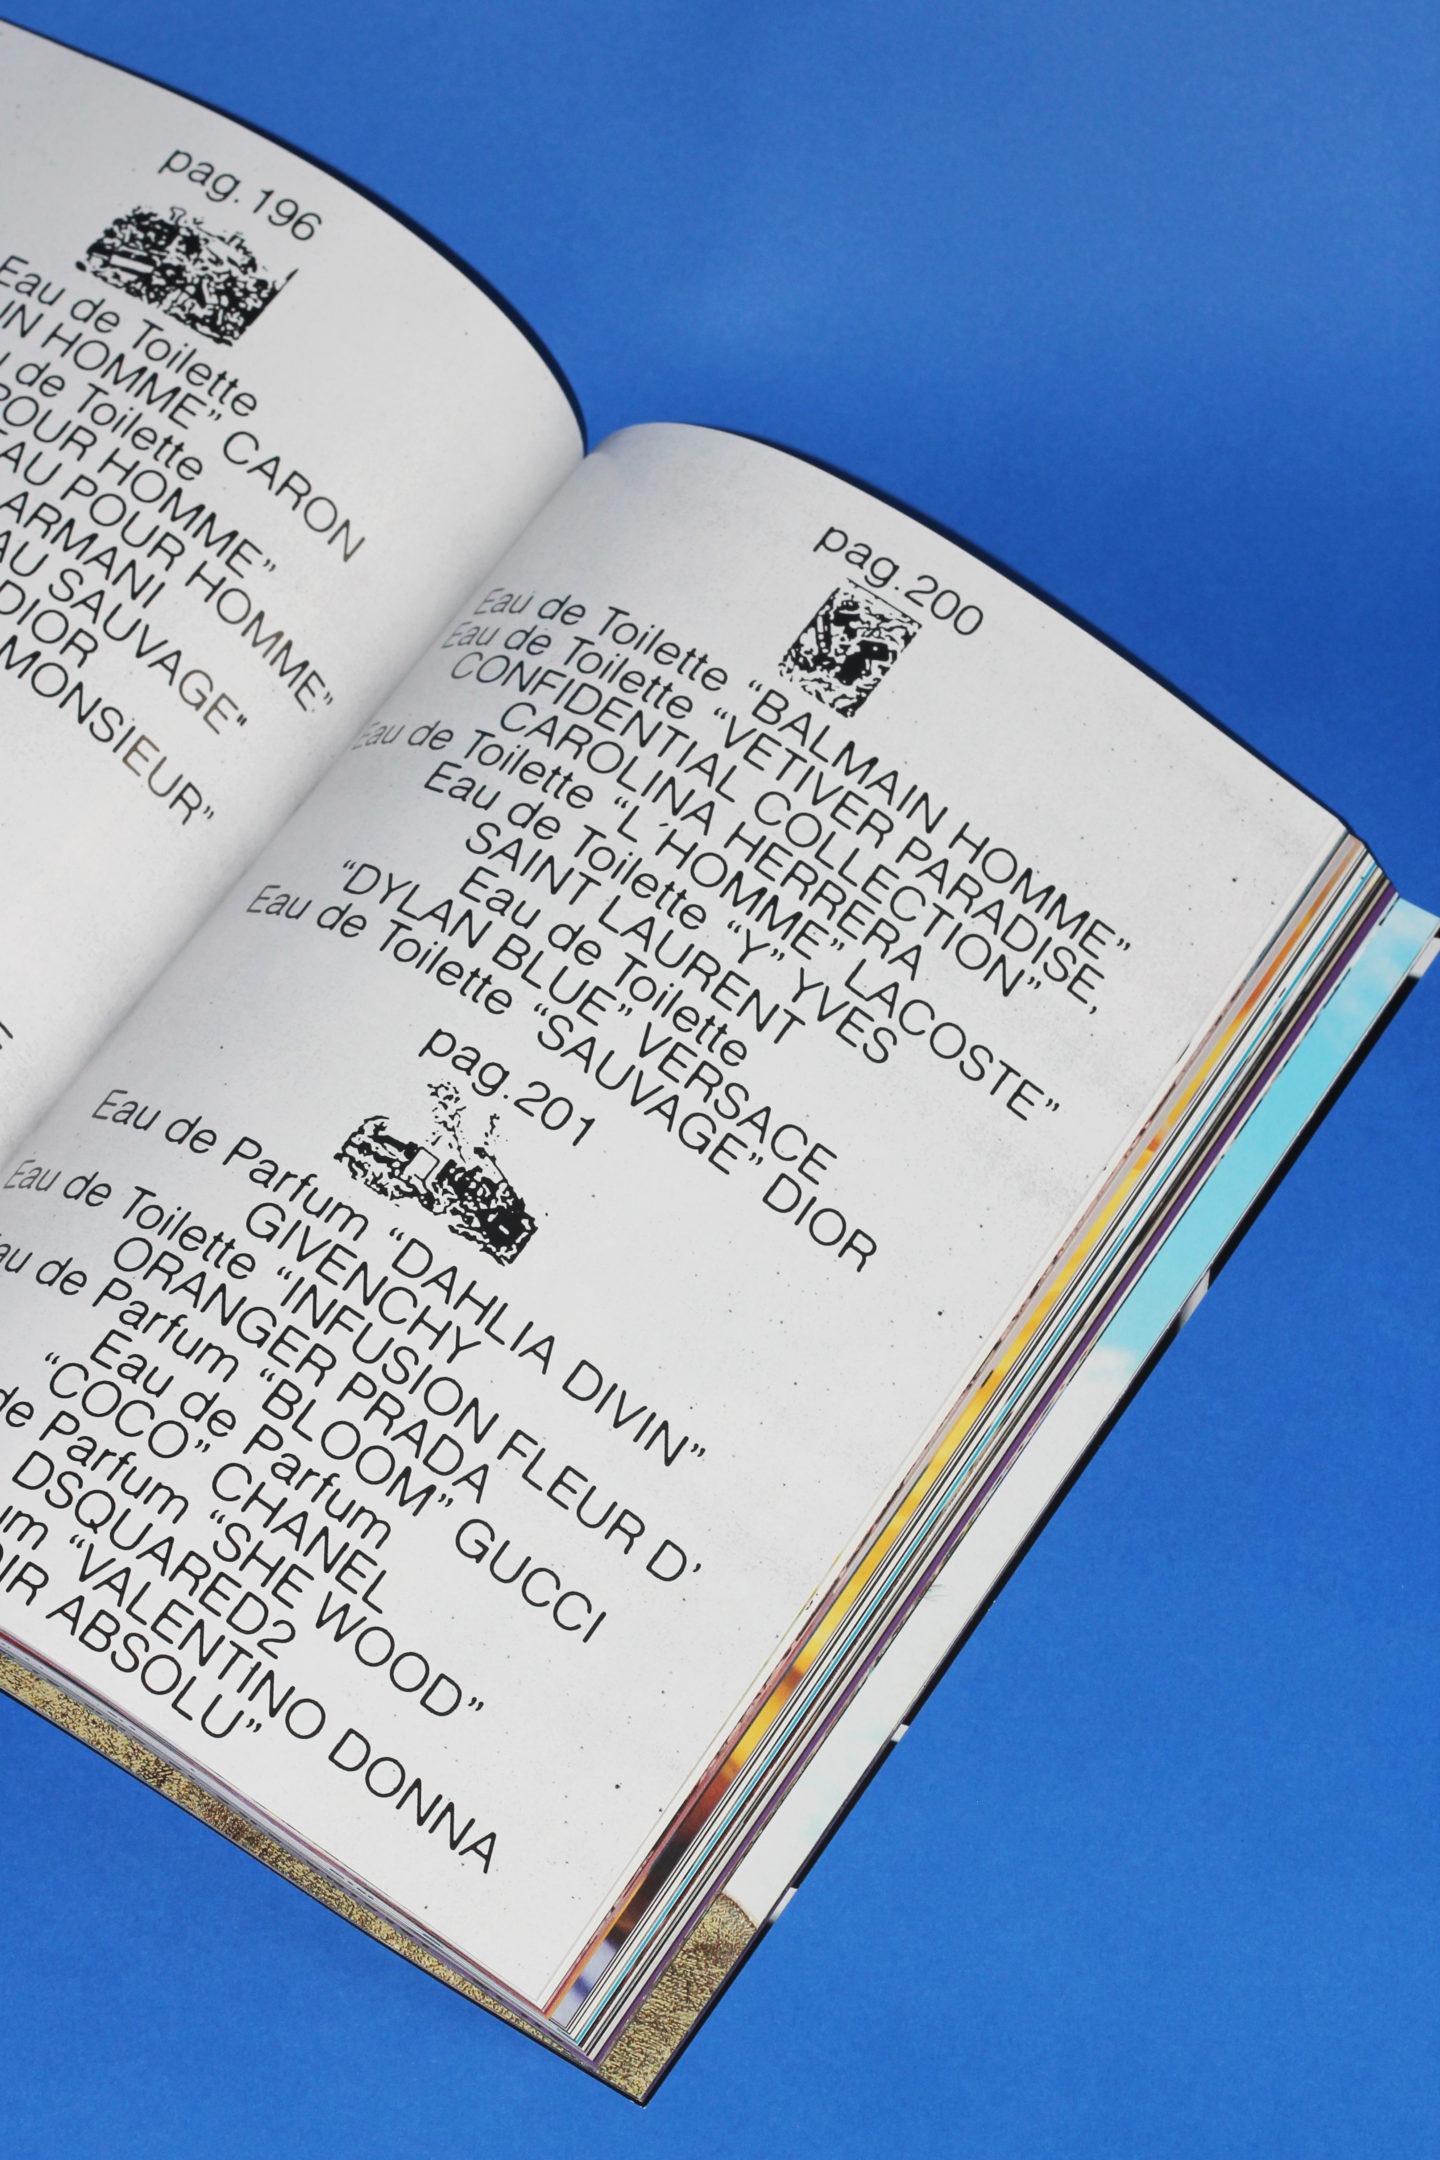 pag. 196
Eau de Toilette
IN HOMME” CARON
de Toilette
POUR HOMME”
POUR HOMME”
ARMANI
SAUVAGE"
DIOR
MONSIEUR”
pag.200
Eau de Toilette “BALMAIN HOMME”
Eau de Toilette “VETIVER PARADISE,
CONFIDENTIAL COLLECTION”
CAROLINA HERRERA
Eau de Toilette “L´HOMME” LACOSTE”
Eau de Toilette “Y” YVES
SAINT LAURENT
Eau de Toilette
“DYLAN BLUE” VERSACE
Eau de Toilette “SAUVAGE” DIOR
pag.201
Eau de Parfum “DAHLIA DIVIN”
GIVENCHY
Eau de Toilette “INFUSION FLEUR D’
ORANGER PRADA
au de Parfum “BLOOM” GUCCI
Eau de Parfum
“COCO” CHANEL
de Parfum “SHE WOOD”
DSQUARED2
um “VALENTINO DONNA
OIR ABSOLU”